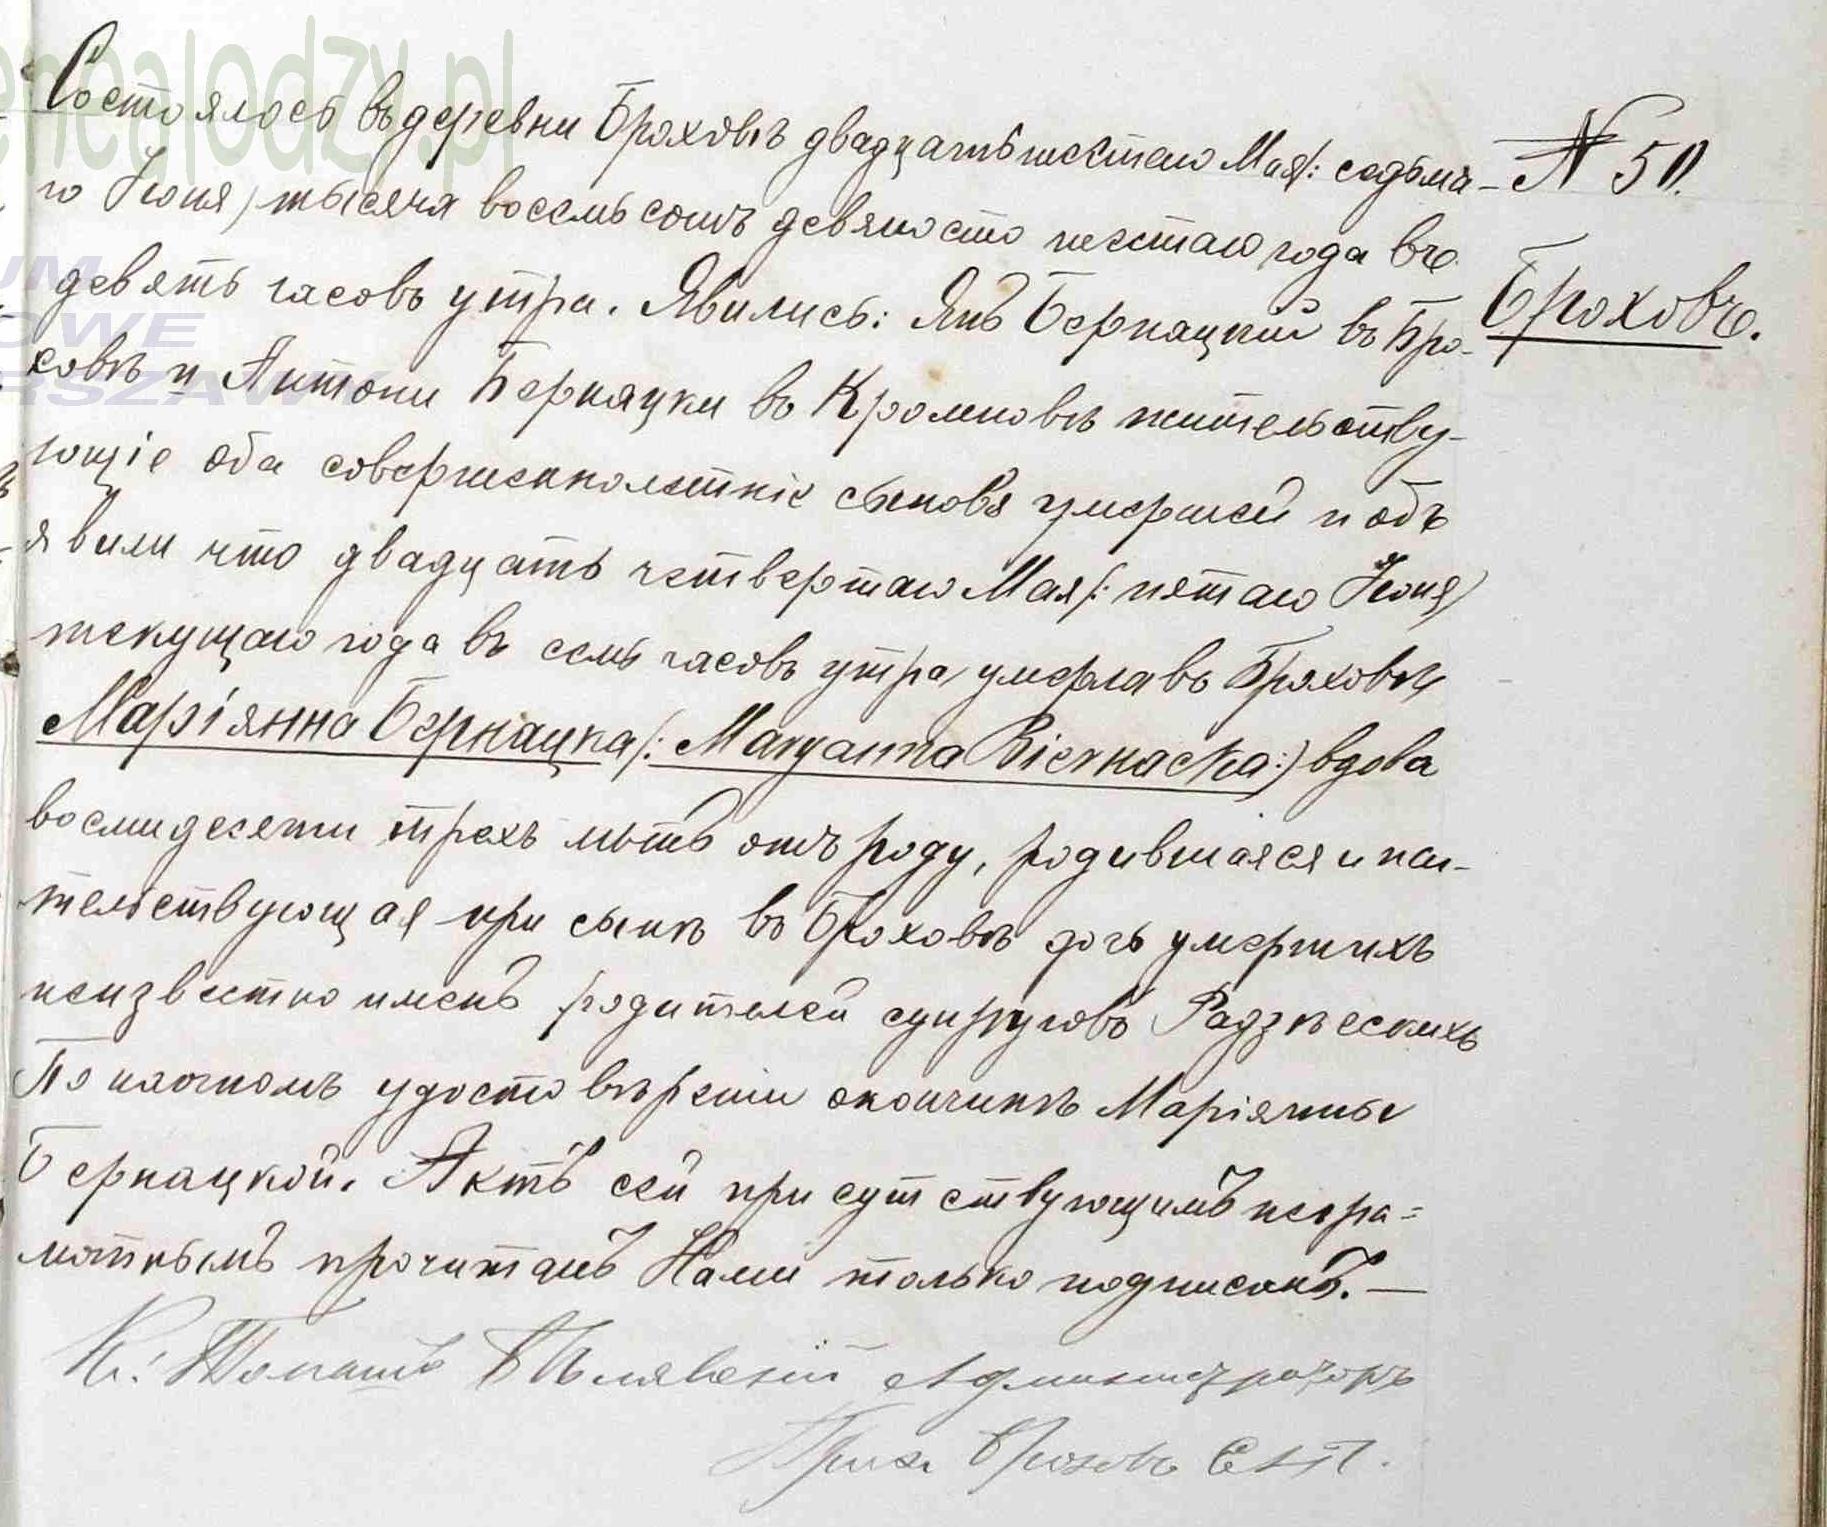 Состоялось въ деревни Броховѣ двадцать шестаго Мая /: седьма-
го Іюня / тысяча восемьсотъ девяносто шестаго года въ
девять часовъ утра. Явились: Янъ Бернацкій въ Бро-
ховѣ и Антони Бернацки въ Кромновѣ жительству-
ющіе оба совершеннолѣтніе сыновя умершей и объ
явили что двадцать четвертаго Мая /: пятаго Іюня /
текущаго года въ семь часовъ утра умерла въ Броховѣ
Маріянна Бернацка /: Maryanna Biernacka :/ вдова
восмидесяти трехъ лѣтъ отъ роду, родившаяся и жи-
тельствующая при сынѣ въ Броховѣ дочь умершихъ
неизвѣстно именъ родителей супруговъ
По наочномъ удостовѣреніи о кончинѣ Маріянны
Бернацкой. Актъ сей присутствующимъ негра=
мотнымъ прочитанъ Нами только подписанъ. —
Кс: Администраторъ
Прих. Брохов.
№ 50.
Броховъ.
enealodzy.pl
UM
OWE
RSZAWY